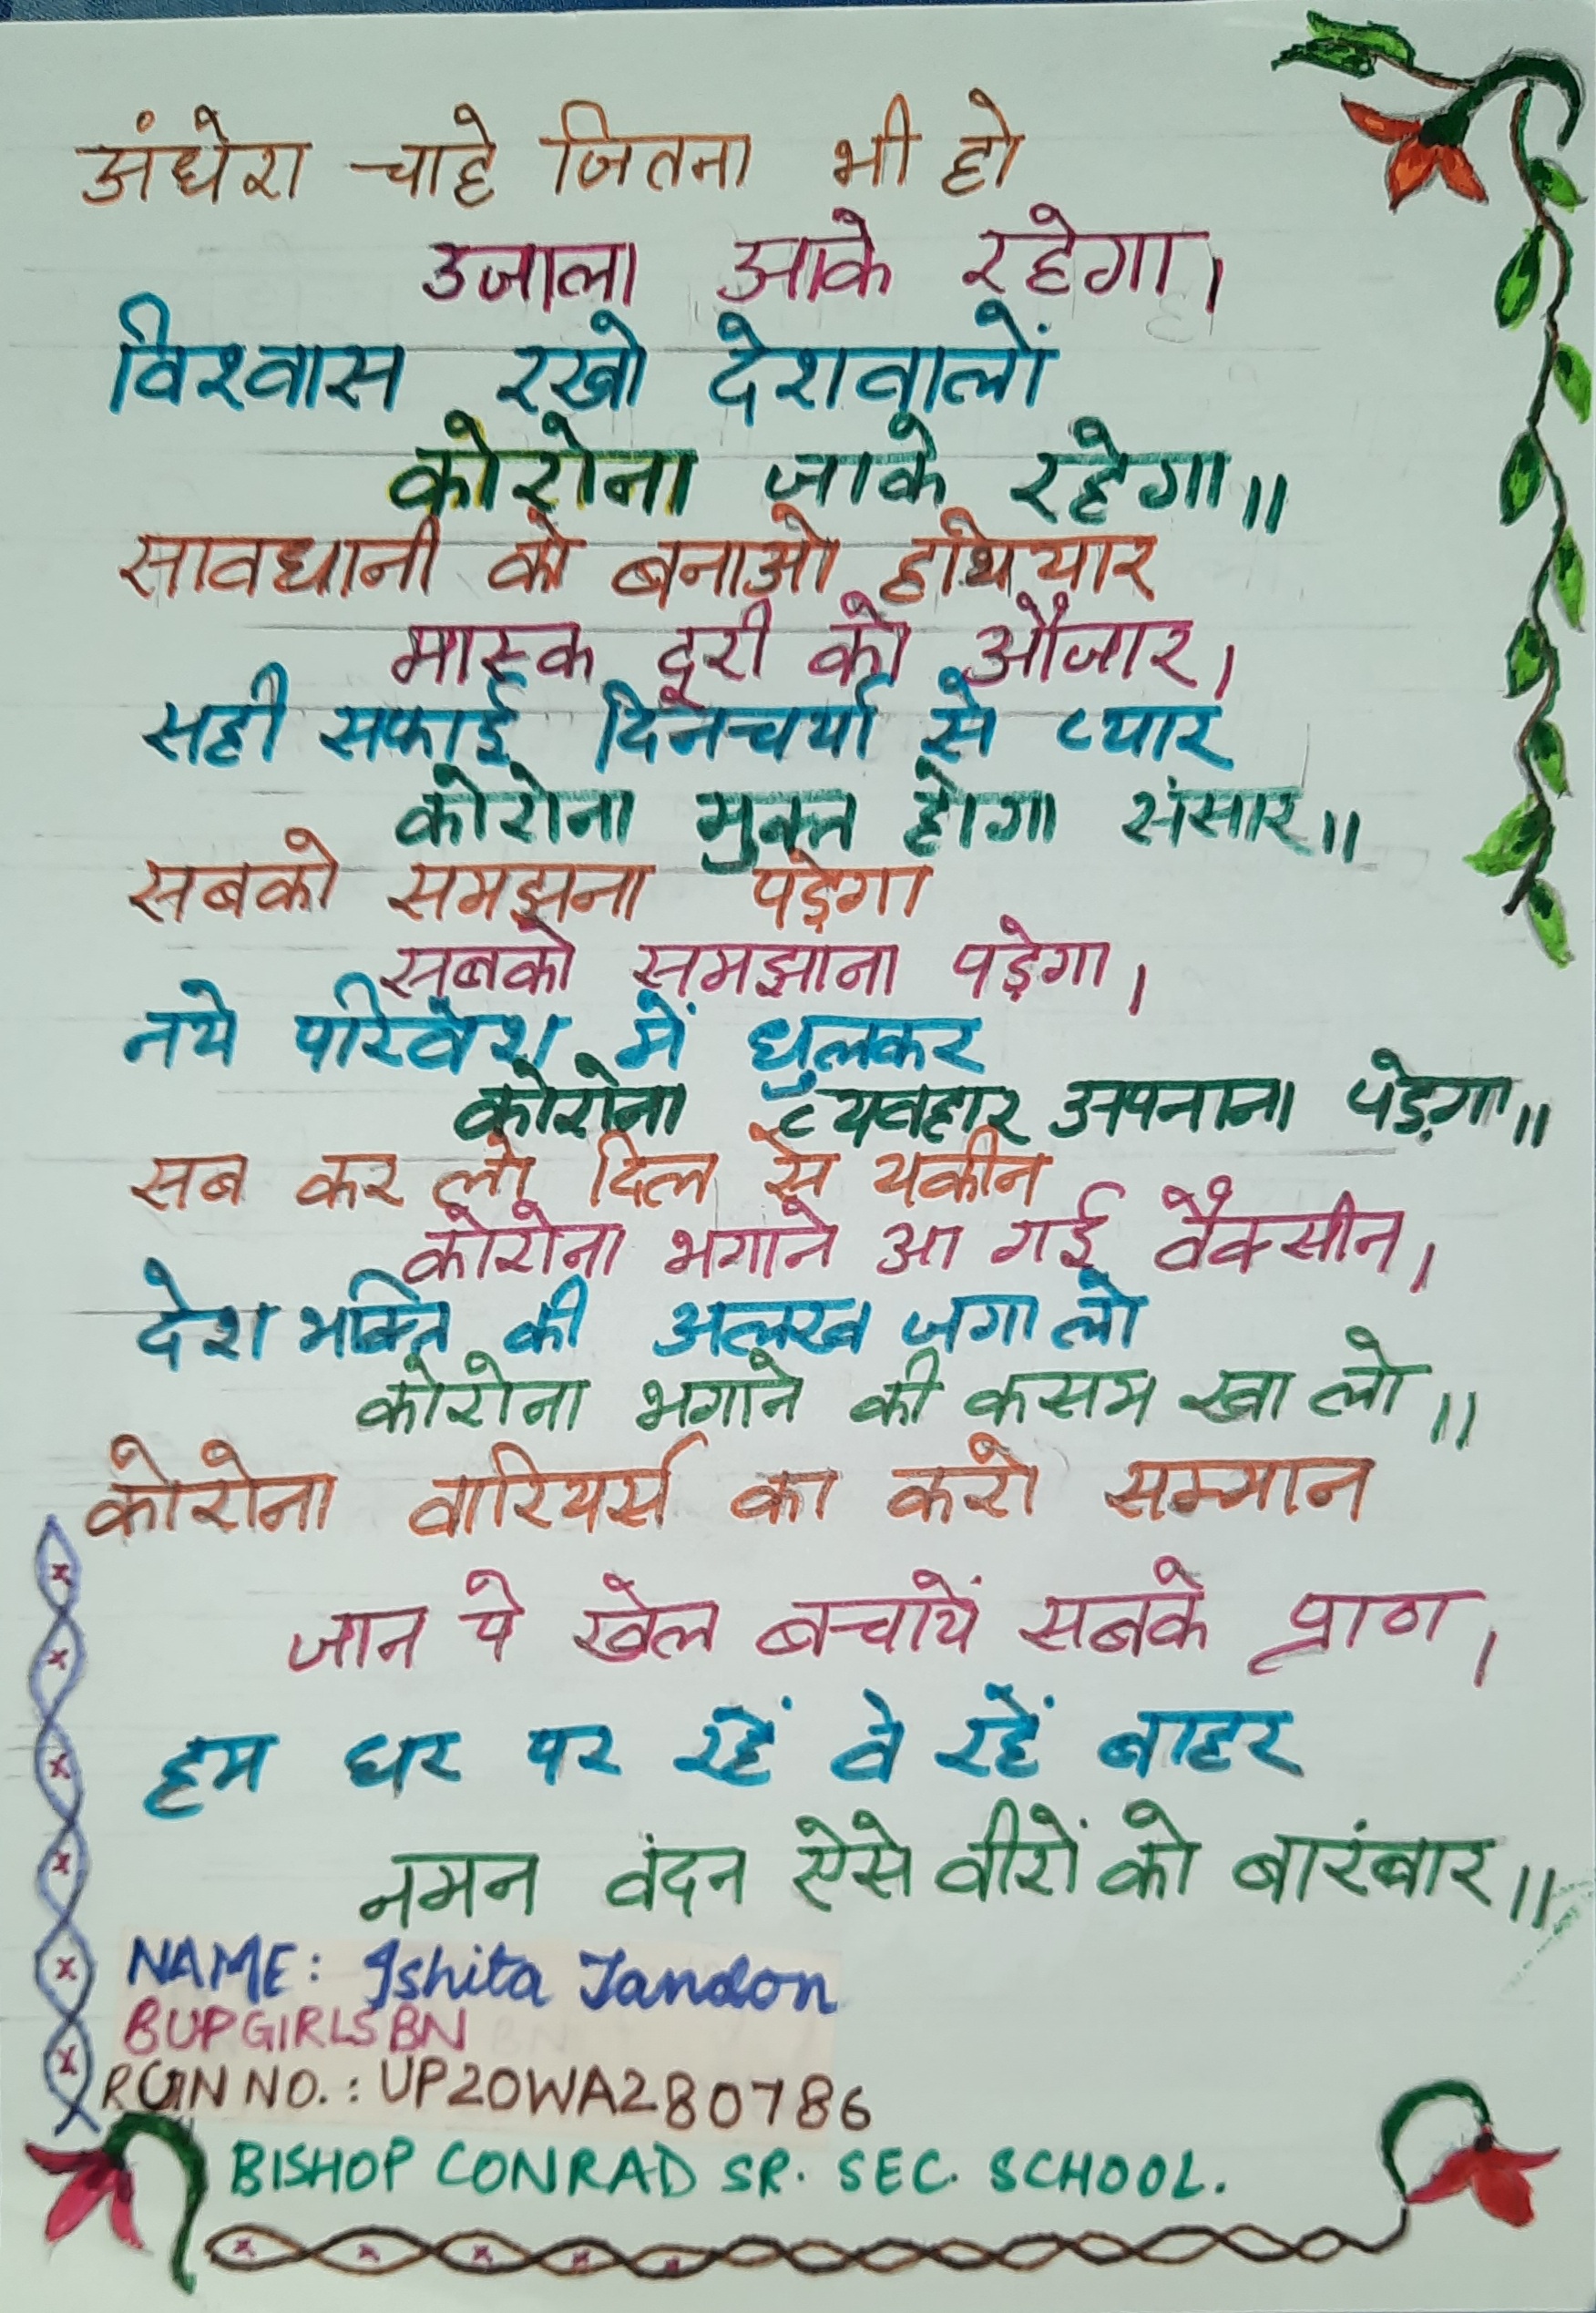 अंधेरा चाहे जितना भी हो
उजाला आके रहेगा।
विश्वास रखो देशवालों
कोरोना जाके रहेगा॥
सावधानी को बनाओ हथियार
मास्क दूरी को औजार।
सही सफाई दिनचर्या से प्यार
कोरोना मुक्त होगा संसार॥
सबको समझना पड़ेगा
सबको समझाना पड़ेगा।
नये परिवेश में धुलकर
कोरोना व्यवहार अपनाना पड़ेगा॥
सब कर लो दिल से यकीन
कोरोना भगाने आ गई वैक्सीन।
देश भक्ति की अलख जगा लो
कोरोना भगाने की कसम खा लो॥
कोरोना वारियर्स का करो सम्मान
जान पे खेल बचायें सबके प्राण।
हम घर पर रहें वे रहें बाहर
नमन वंदन ऐसे वीरों को बारंबार॥
NAME: Ishita Tandon
8UPGIRLSBN
RGN NO.: UP20WA280786
BISHOP CONRAD SR. SEC. SCHOOL.